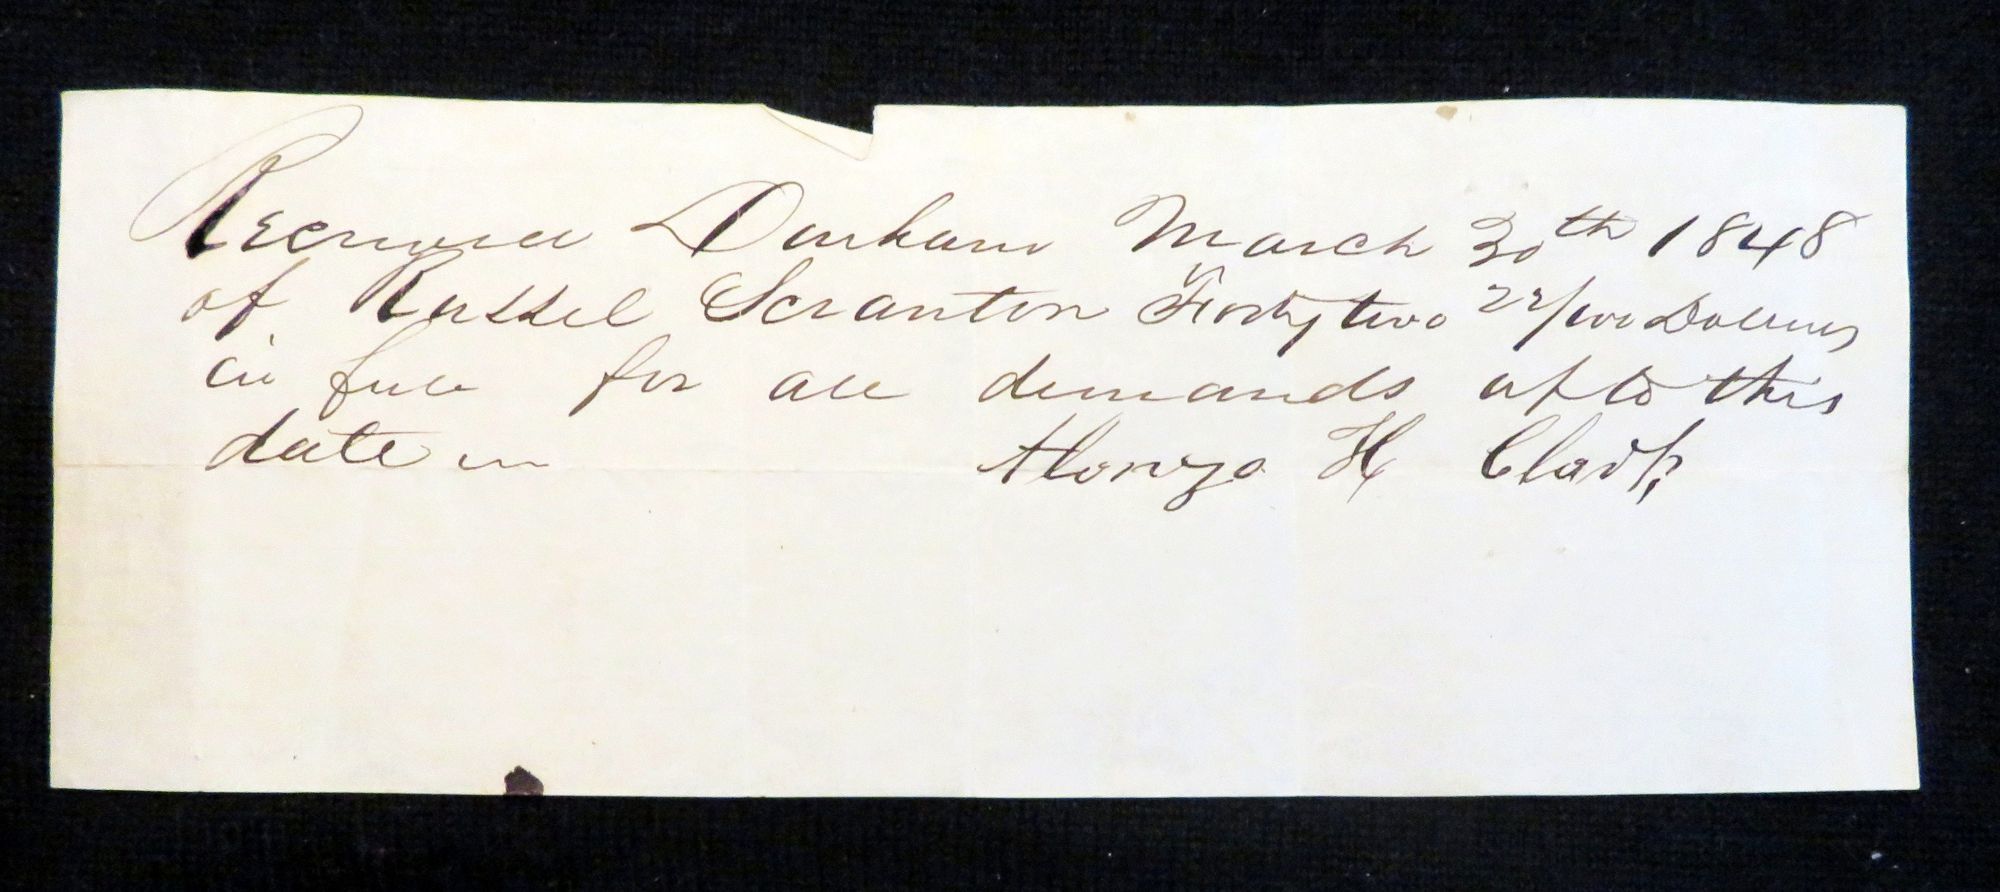 Received Durham March 30th 1848
of Russel Scranton Forty two 22/100 Dollars
in full for all demands up to this
date
Alonzo H Clark